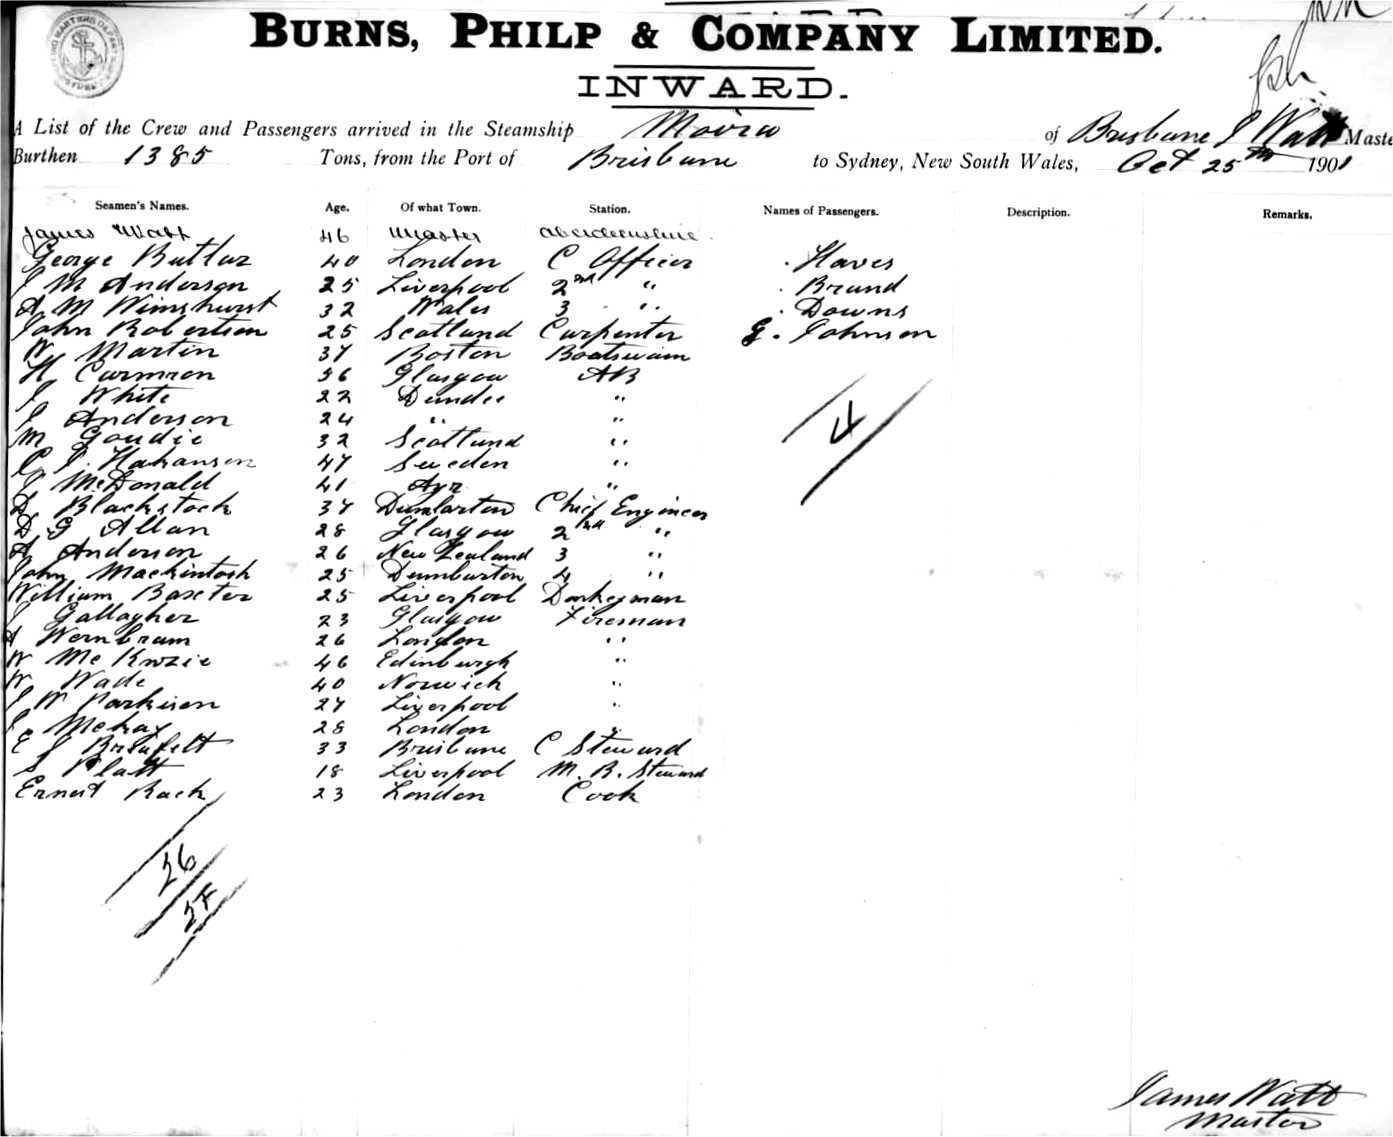 BURNS, PHILP & COMPANY LIMITED.
INWARD.
A List of the Crew and Passengers arrived in the Steamship Moira of Brisbane J Watt Maste
Burthen 1385 Tons, from the Port of Brisbane to Sydney, New South Wales, Oct 25th 1901
Seamen's Names. Age. Of what Town. Station. Names of Passengers. Description. Remarks.
James Watt 46 Master Aberdeenshire
George Buttar 40 London C Officer Haves
J M Anderson 25 Liverpool 2nd " Brand
A M Wimshurst 32 Wales 3 " Downs
John Robertson 25 Scotland Carpenter G. Johnson
W Martin 37 Boston Boatswain
H 36 Glasgow AB
J White 22 Dundee "
J Anderson 24 " "
M Goudie 32 Scotland "
C J. 47 Sweden "
J McDonald 41 Ayr "
D Blackstock 37 Dumbarton Chief Engineer
D G Allan 28 Glasgow 2nd "
A Anderson 26 New Zealand 3 "
John Mackintosh 25 Dumbarton 4 "
William Baxter 25 Liverpool Donkeyman
J Gallagher 23 Glasgow Fireman
A Wernbram 26 London "
W 46 Edinburgh "
W Wade 40 Norwich "
J W Parkison 27 Liverpool "
J McKay 28 London "
E J 33 Brisbane C Steward
S Platt 18 Liverpool M. R. Steward
Ernest Rack 23 London Cook
4
26
James Watt
Master